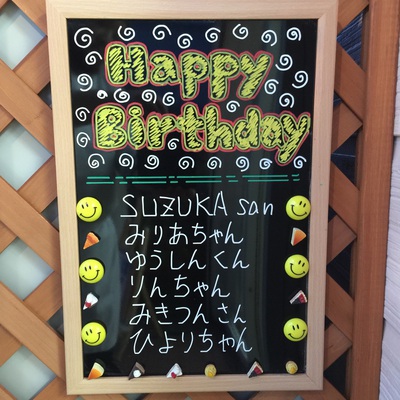 Happy
Birthday
SUZUKA san
みりあちゃん
ゆうしんくん
りんちゃん
みきつんさん
ひよりちゃん